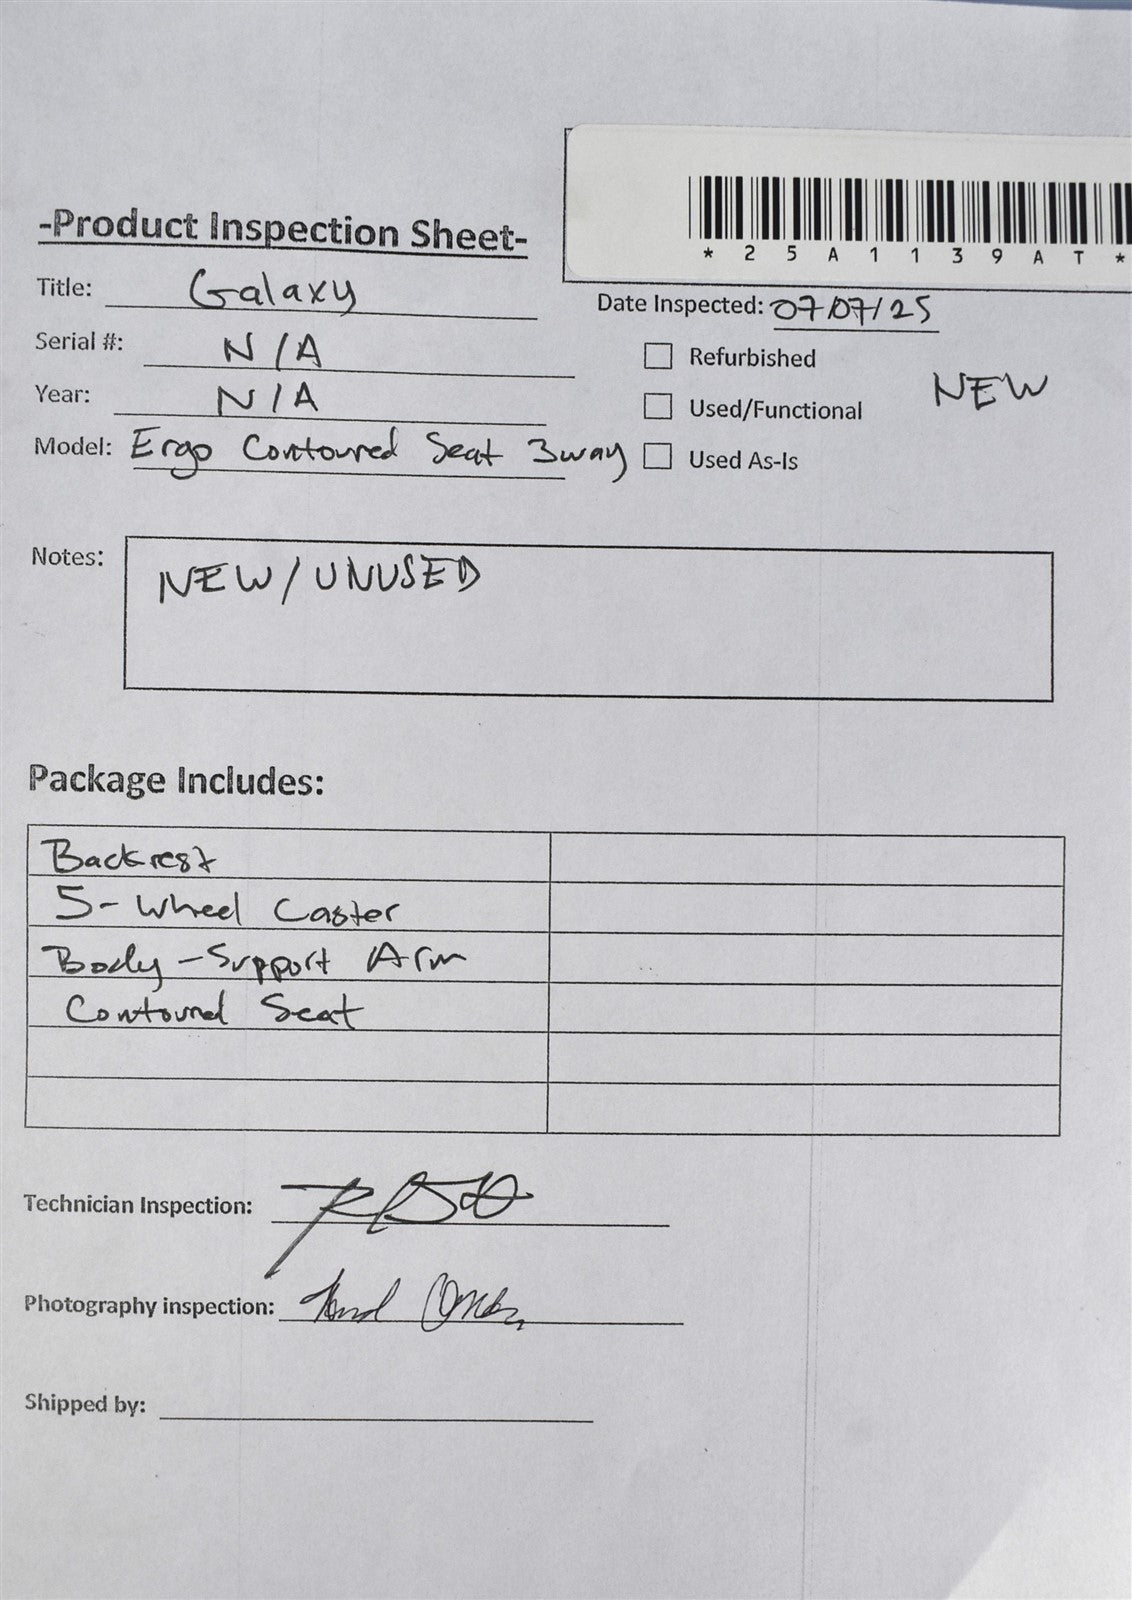 *25A1139AT*
-Product Inspection Sheet-
Title: Galaxy
Date Inspected: 07/07/25
Serial #: N/A
Refurbished
Year: N/A
Used/Functional
NEW
Model: Ergo Contoured Seat 3way
Used As-Is
Notes: NEW/UNUSED
Package Includes:
Backrest
5-Wheel Caster
Body-Support Arm
Contoured Seat
Technician Inspection:
Photography inspection:
Shipped by: